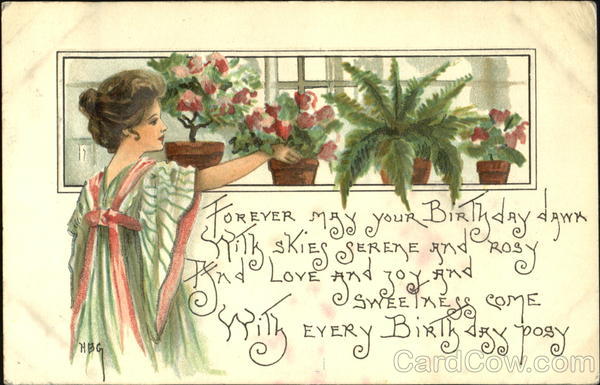 Forever may your Birthday dawn
With skies serene and rosy
And Love and joy and
Sweetness come
With every Birthday posy
HBG
CardCow.com